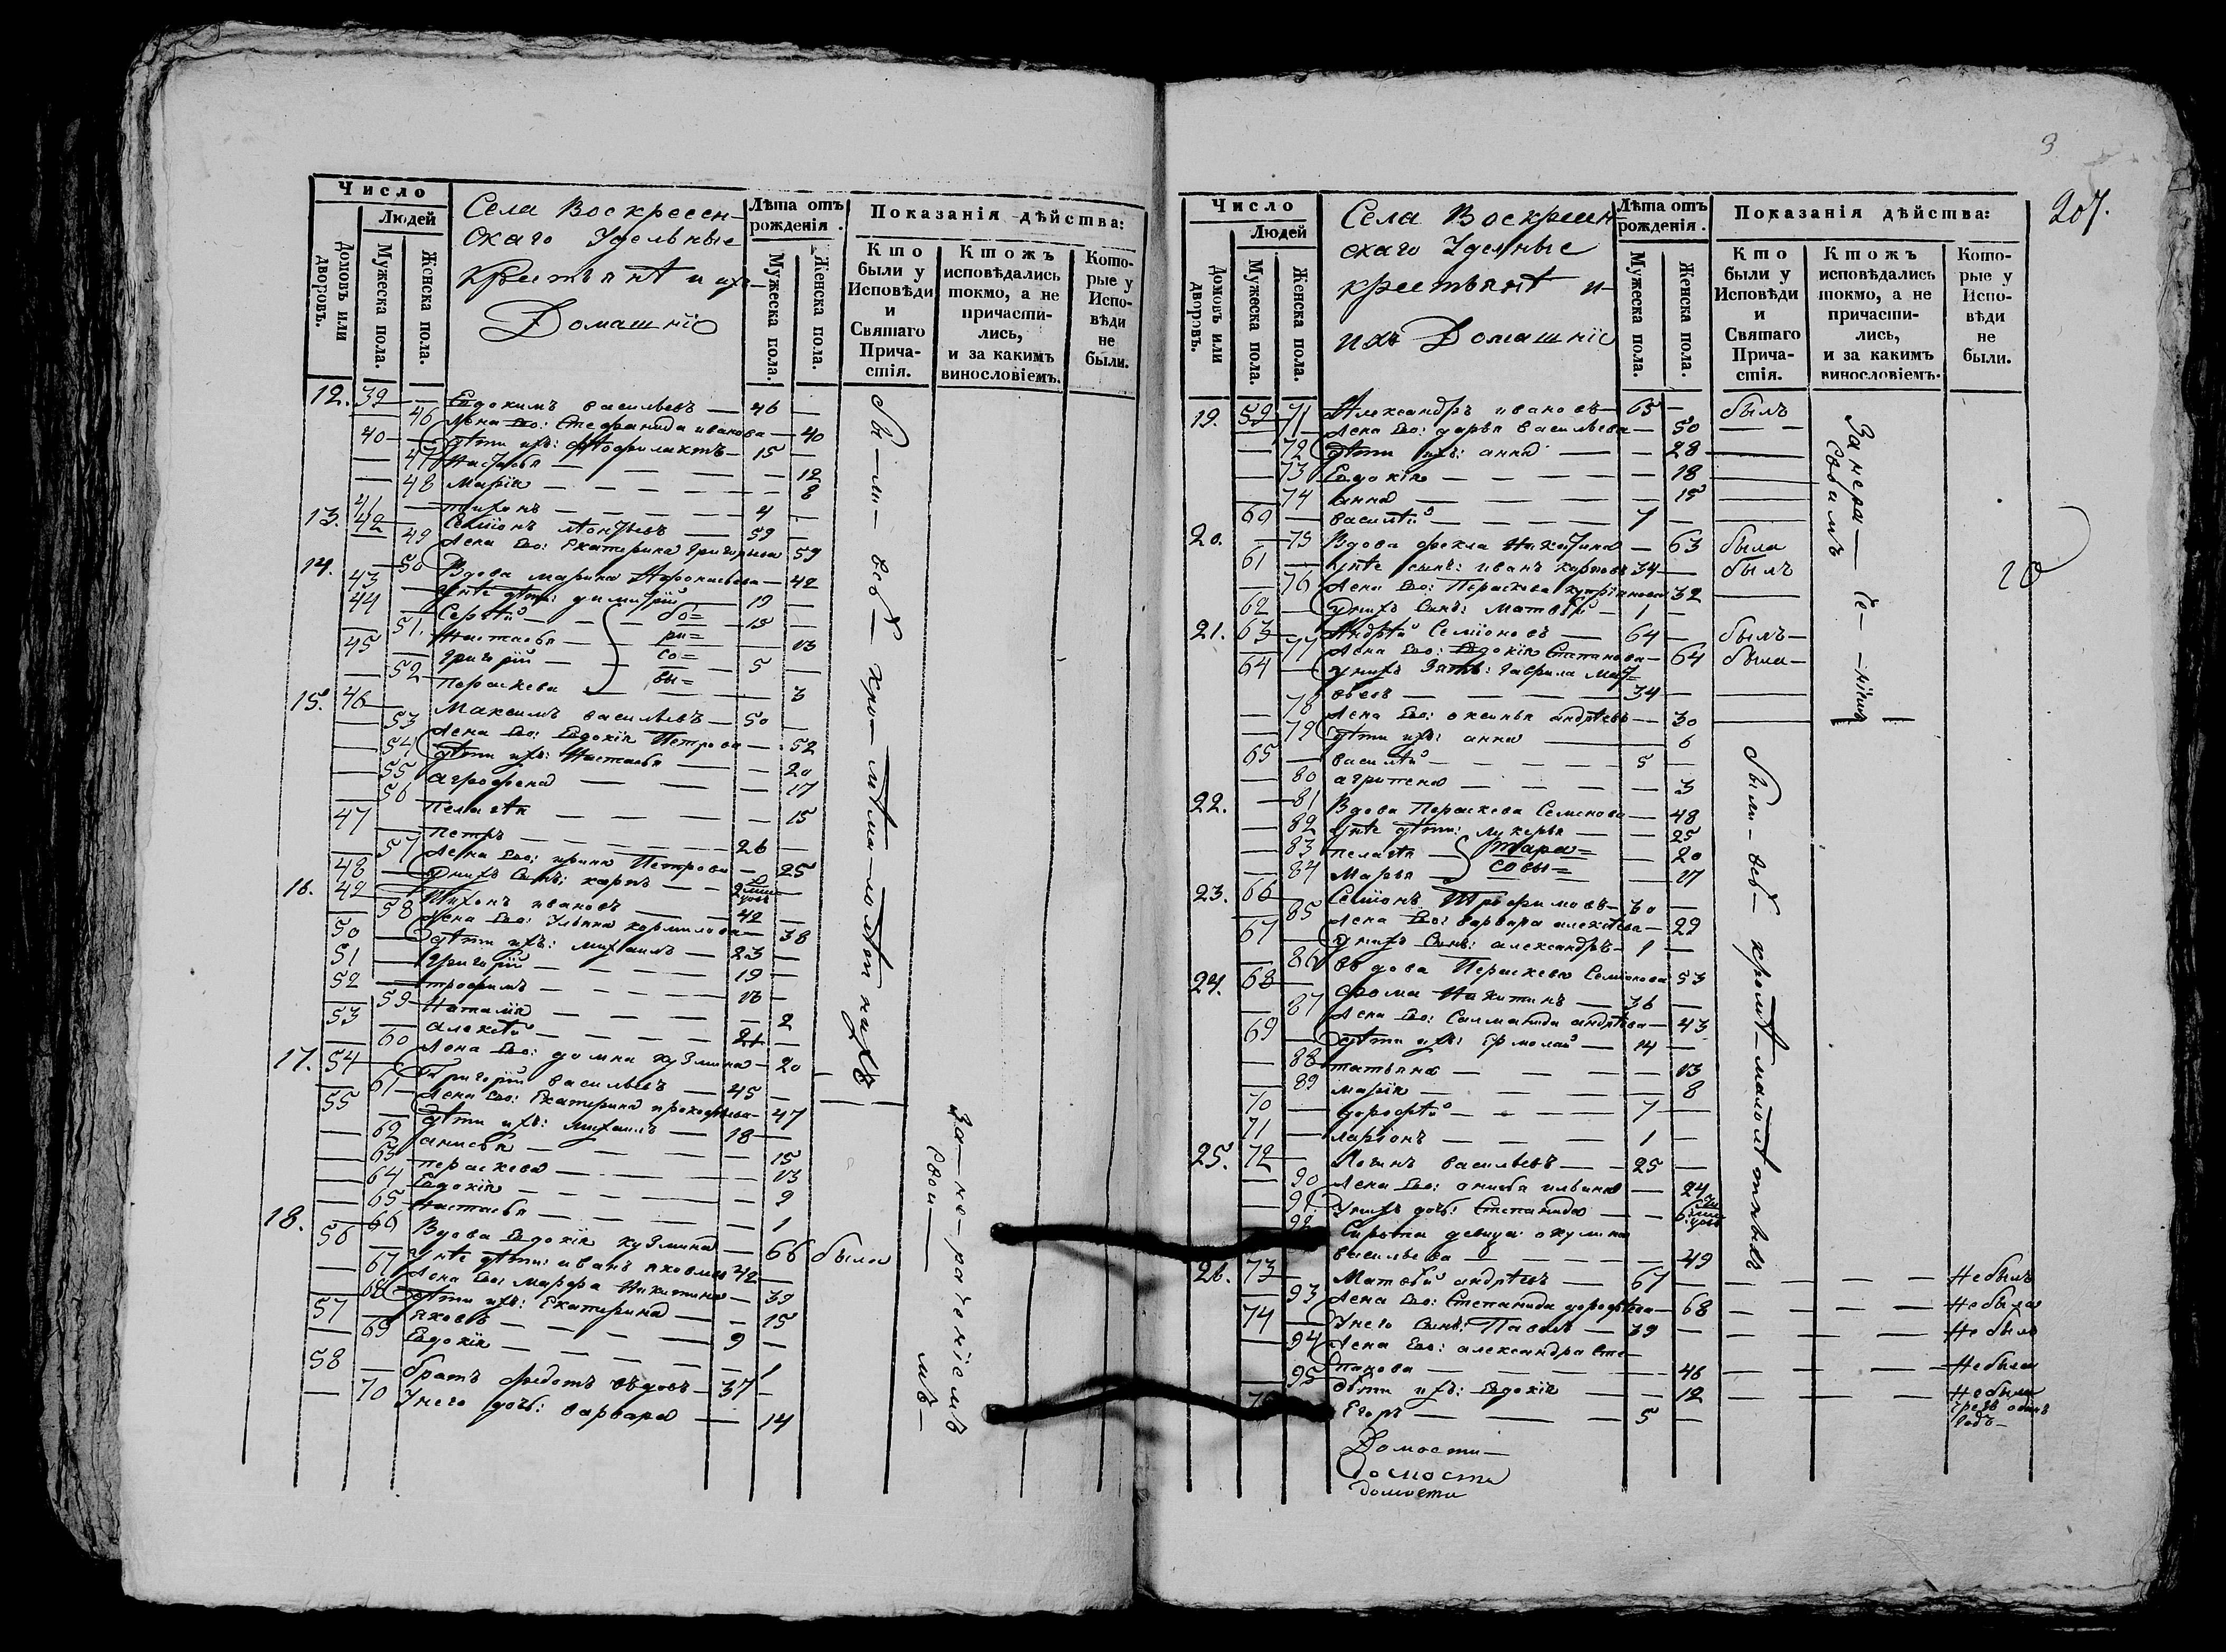 Число
Людей
Домовъ или дворовъ.
Мужеска пола.
Женска пола.
Села Воскресен-
скаго Удельные
Крестьянѣ и ихъ
Домашніе
Лѣта отъ рожденія.
Мужеска пола.
Женска пола.
Показанія дѣйства:
Кто были у Исповѣди и Святаго Причастія.
Ктожъ исповѣдались токмо, а не причастились, и за какимъ винословіемъ.
Которые у Исповѣди не были.
12. 39 — Евдокимъ васильевъ — 46 —
46 Жена Ево: Стефанида иванова — 40
40 — дѣти ихъ: Феофилактъ — 15 —
47 Настасья — 12
48 Марія — 8
41 — тихонъ — 4 —
13. 42 — Семіонъ — 59 —
49 Жена Ево: Екатерина Григорьева 59
14. — 50 Вдова Марина — 42
43 — Унѣе дѣти: димитрій — 19 —
44 — Сергѣй — 15 —
51 Настасья — 13
45 — Григорій — 5 —
52 Пораскева — 3
бо=
ри=
со=
вы=
15. 46 — Максимъ васильевъ — 50 —
53 Жена Ево: Евдокія Петрова — 52
54 дѣти ихъ: Настасья — 20
55 агрофена — 17
56 Пелагѣя — 15
47 — Петръ — 26 —
57 Жена Ево: ирина Петрова — 25
48 — Унихъ Сынъ: карпъ —
16. 49 — Тихонъ ивановъ — 42 —
58 Жена Ево: Ульяна кормилова — 38
50 — дѣти ихъ: михаилъ — 23 —
51 — Григорій — 19 —
52 — трофимъ — 13 —
59 Наталія — 2
53 — алексѣй — 21 —
60 Жена Ево: домна кузмина — 20
17. 54 — Григорій васильевъ — 45 —
61 Жена Ево: Екатерина прокофьева — 47
55 — дѣти ихъ: михаилъ — 18 —
62 анисья — 15
63 пераскева — 13
64 Евдокія — 9
65 Настасья — 1
18. — 66 Вдова Евдокія кузмина — 66 была
56 — Унѣе дѣти: иванъ яковлевъ 42 —
67 Жена Ево: Марфа Никитина — 39
68 дѣти ихъ: Екатерина — 15
57 — яковъ — 9 —
69 Евдокія — 1
58 — братъ федотъ вдовъ — 37 —
70 Унего дочь: варвара — 14
бы — ли — всѣ — кро — мѣ ма — лолѣтнихъ
За — не — раченіемъ
свои — мъ —
3
207.
Число
Людей
Домовъ или дворовъ.
Мужеска пола.
Женска пола.
Села Воскресен-
скаго Уделные
крестьянѣ и-
ихъ Домашніе
Лѣта отъ рожденія.
Мужеска пола.
Женска пола.
Показанія дѣйства:
Кто были у Исповѣди и Святаго Причастія.
Ктожъ исповѣдались токмо, а не причастились, и за какимъ винословіемъ.
Которые у Исповѣди не были.
19. 59 — Александръ ивановъ — 65 — былъ
71 Жена Ево: дарья васильева — 50
72 дѣти ихъ: анна — 28
73 Евдокія — 18
74 анна — 15
60 — василѣй — 7 —
20. — 75 Вдова фекла Никитина — 63 была
61 — Унѣе сынъ: иванъ карповъ 34 — былъ
76 Жена Ево: Пераскева купріянова 32
62 — Унихъ Сынъ: Матвѣй — 1 —
21. 63 — Андрѣй Семіоновъ — 64 — былъ —
77 Жена Ево: Евдокія Степанова — 64 была —
64 — Унихъ Зять: Гаврила Мат=
вѣевъ — 34 —
78 Жена Ево: оксинья андрѣева — 30
79 дѣти ихъ: анна — 6
65 — василѣй — 5 —
80 агрипена — 3
22. — 81 Вдова Пераскева Семенова — 48
82 Унѣе дѣти: лукерья — 25
83 пелагѣя — 20
84 Марья — 17
Тара=
совы=
23. 66 — Семіонъ Трофимовъ — 30 —
85 Жена Ево: варвара алексѣева — 29
67 — Унихъ Сынъ: александръ — 1 —
86 вдова Пераскева Семіонова 53
24. 68 — фома Никитинъ — 36 —
87 Жена Ево: Саламанида андрѣева — 43
69 — дѣти ихъ: Ермолай — 14 —
88 татьяна — 13
89 марія — 8
70 — дорофѣй — 7 —
71 — ларіонъ — 1 —
25. 72 — Логинъ васильевъ — 25 —
90 Жена Ево: анисья ильина — 24
91 Унихъ дочь: Степанида —
92 Сирота девица акулина
васильева — 49
26. 73 — Матвѣй андрѣевъ — 67 — Небылъ
93 Жена Ево: Степанида дорофѣева — 68 Небыла
74 — Унего Сынъ: Павелъ — 39 — Небылъ
94 Жена Ево: александра Сте-
панова — 46 Небыла
95 дѣти ихъ: Евдокія — 12 Небыла
Егоръ — 5 —
чрезъ одинъ
годъ —
Занера — че — ніемъ
своимъ
были — всѣ — кромѣ — малолѣтнихъ
Домости —
Домости
домости